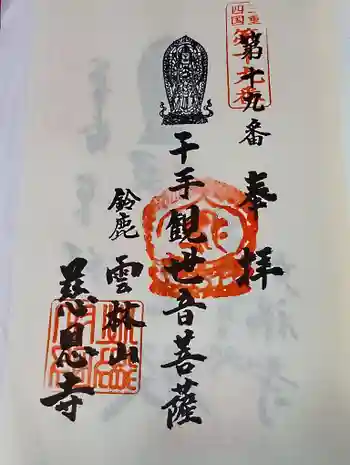 三重
四国
第十九番
奉拝
千手観世音菩薩
鈴鹿
雲林山
慈恩寺